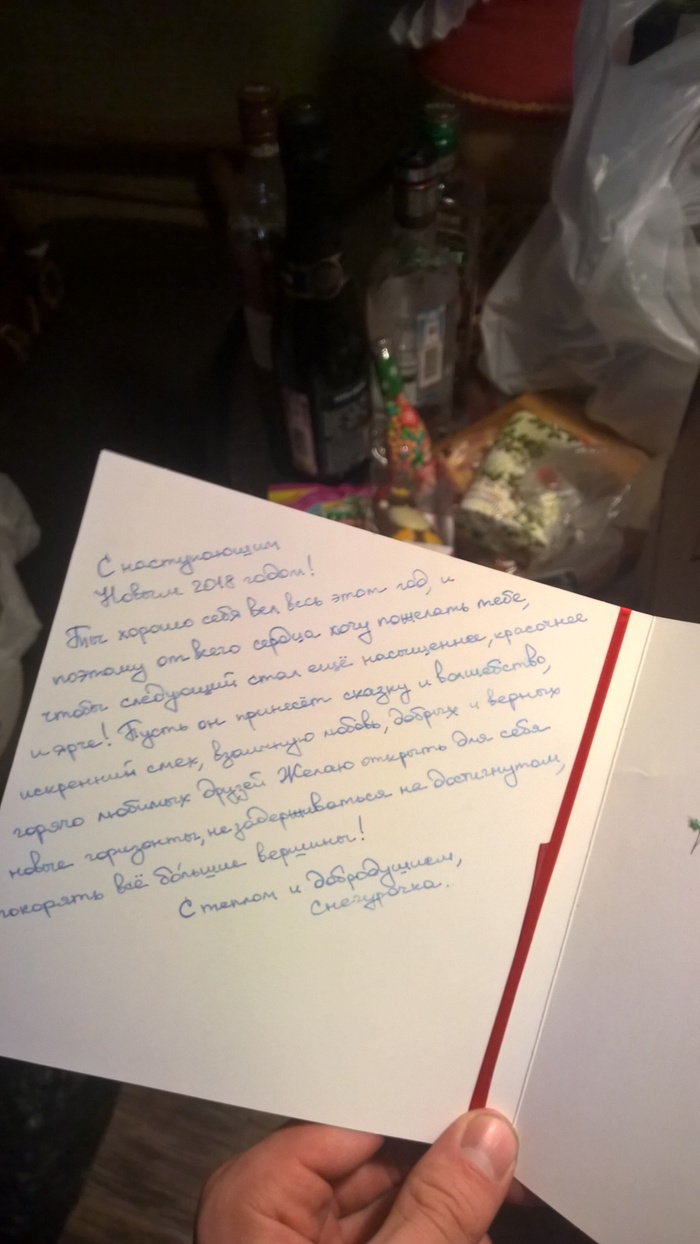 С наступающим
Новым 2018 годом!
Ты хорошо себя вел весь этот год, и
поэтому от всего сердца хочу пожелать тебе,
чтобы следующий стал ещё насыщеннее, красочнее
и ярче! Пусть он принесёт сказку и волшебство,
искренний смех, взаимную любовь, добрых и верных
горячо любимых друзей Желаю открыть для себя
новые горизонты, не задерживаться на достигнутом,
покорять всё бо́льшие вершины!
С теплом и добродушием,
Снегурочка..